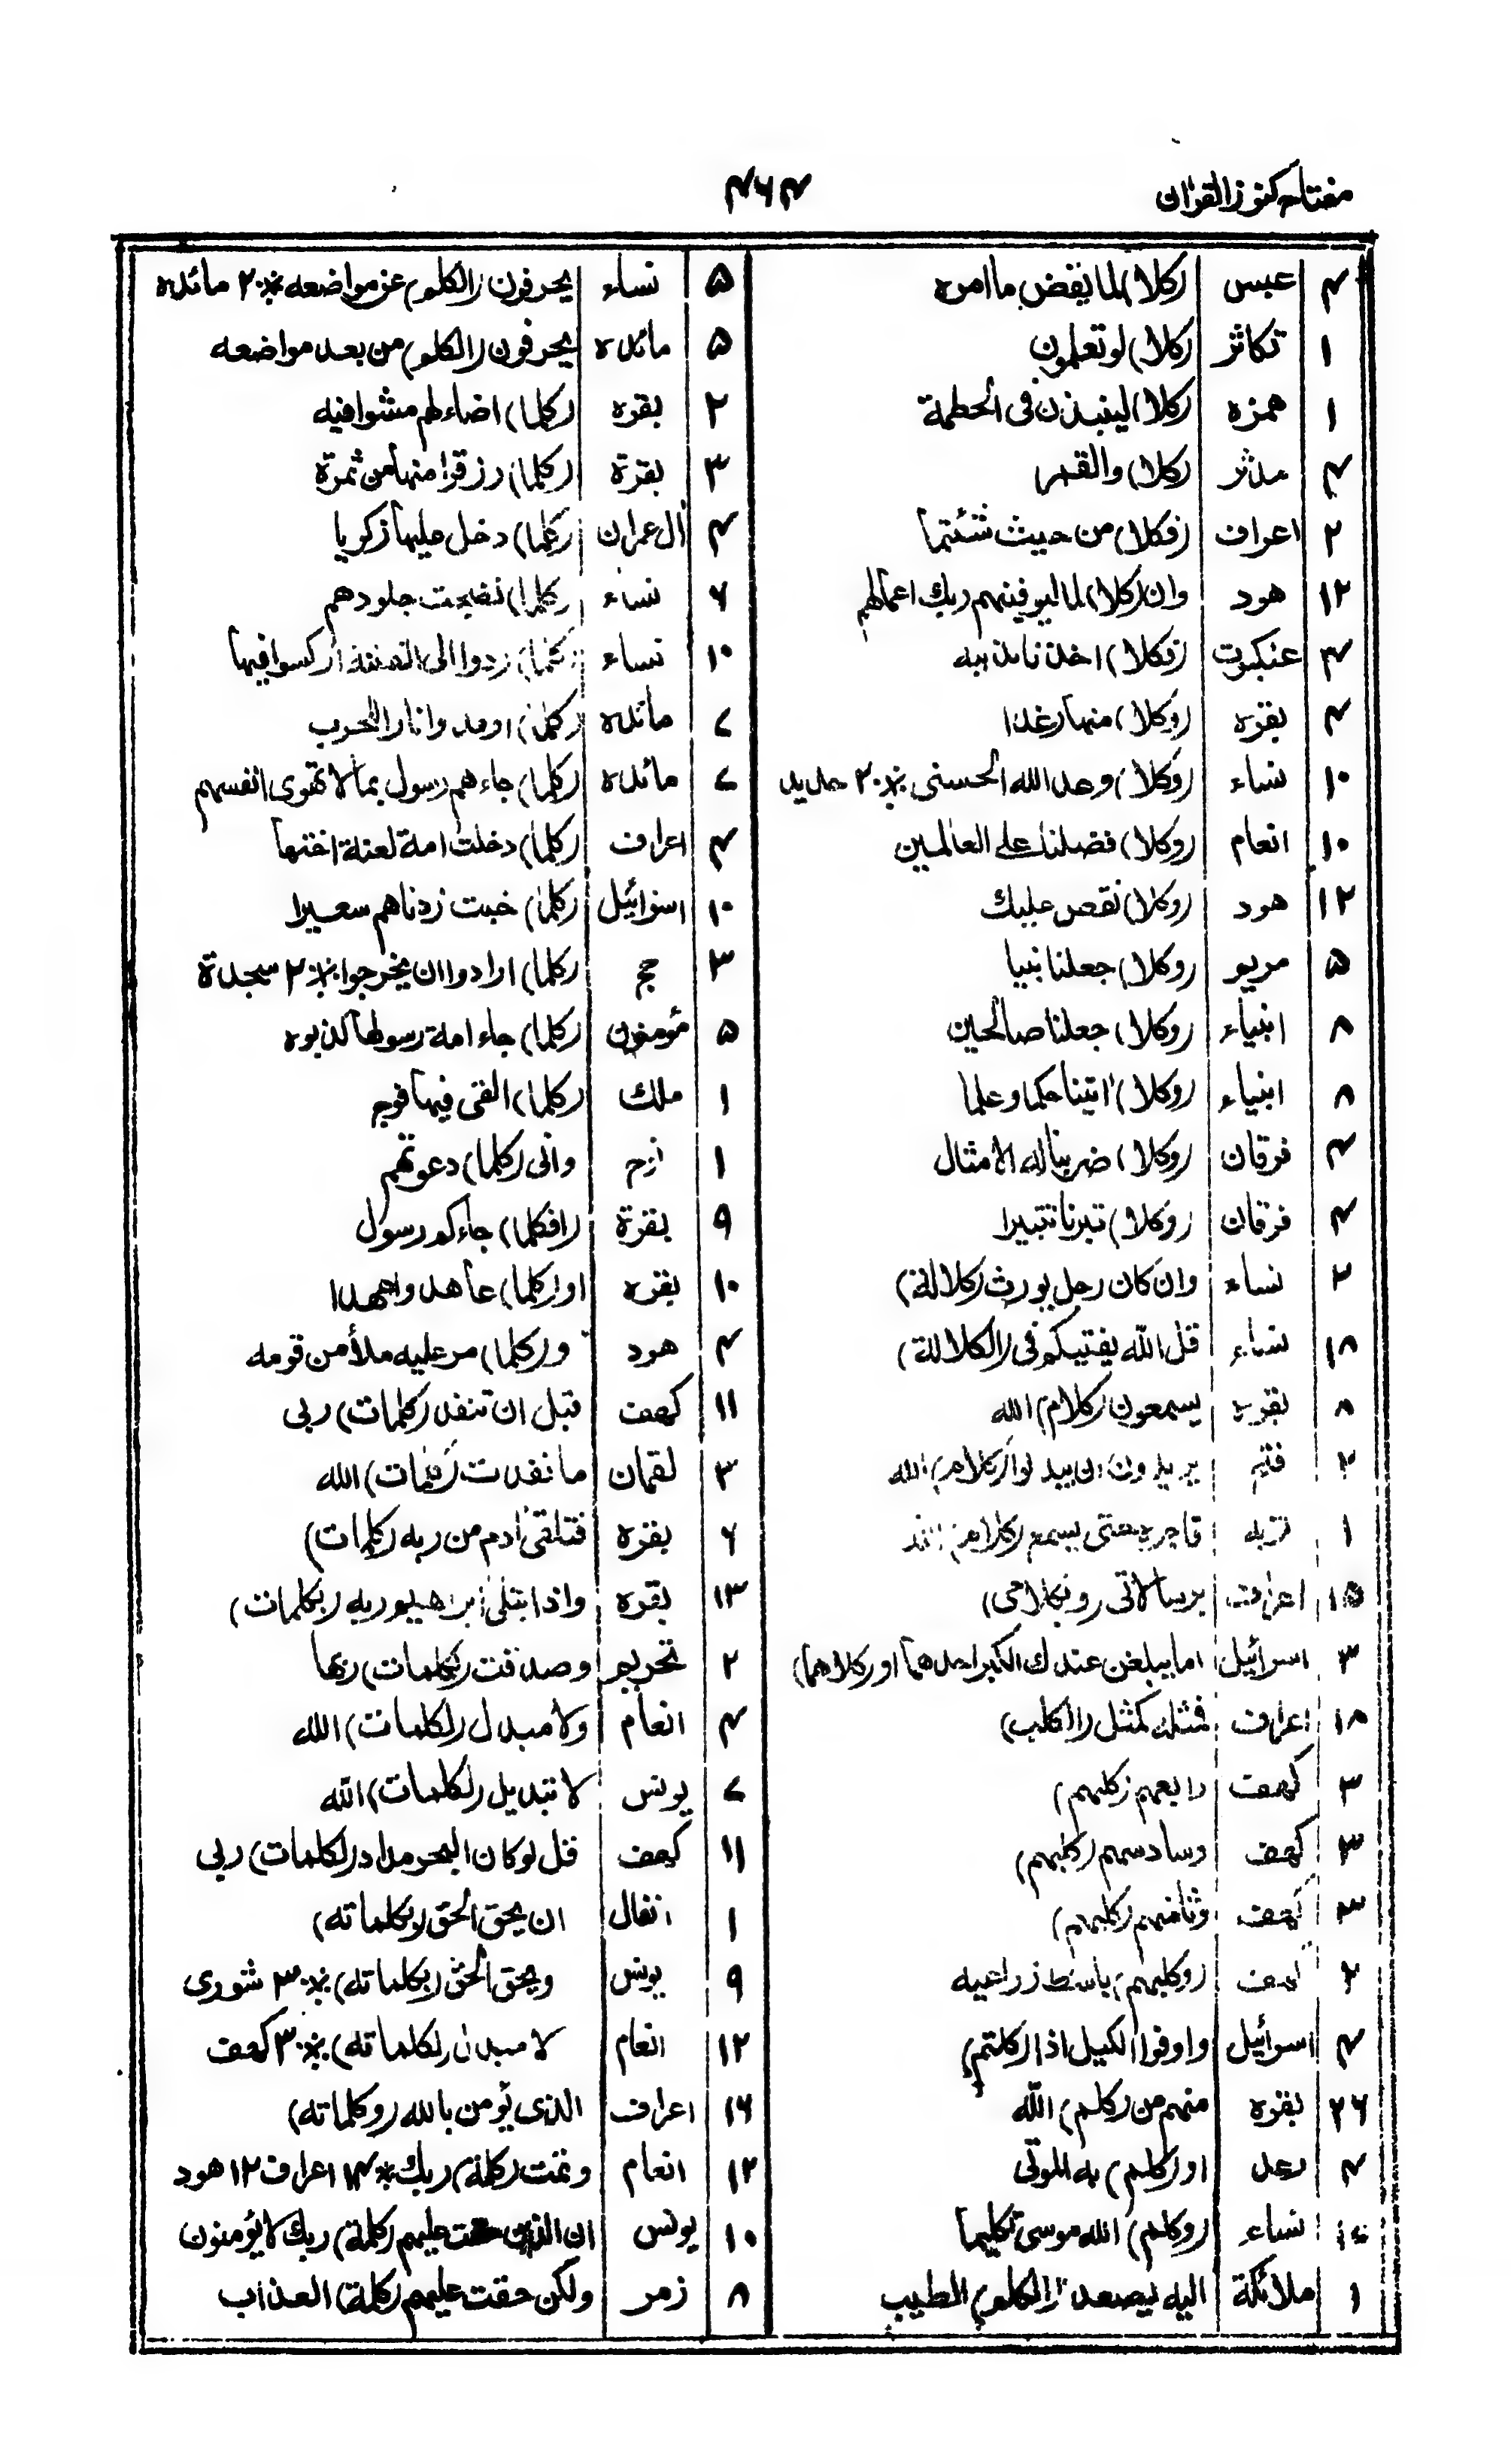 مفتاح كنوز القرآن
۴۶۴
۴ عبس (كلا) لما يقض ما امره
۱ تكاثر (كلا) لو تعلمون
۱ همزه (كلا) لينبذن فى الحطمة
۴ مدثر (كلا) والقمر
۲ اعراف (فكلا) من حيث شئتما
۱۲ هود وان (كلا) لما ليوفينهم ربك اعمالهم
۴ عنكبوت (فكلا) اخذنا بذنبه
۴ بقره (وكلا) منها رغدا
۱۰ نساء (وكلا) وعد الله الحسنى ※ ۲۰ حديد
۱۰ انعام (وكلا) فضلنا على العالمين
۱۲ هود (وكلا) نقص عليك
۵ مريم (وكلا) جعلنا نبيا
۸ انبياء (وكلا) جعلنا صالحين
۸ انبياء (وكلا) اتينا حكما وعلما
۴ فرقان (وكلا) ضربنا له الامثال
۴ فرقان (وكلا) تبرنا تتبيرا
۲ نساء وان كان رجل يورث (كلالة)
۱۸ نساء قل الله يفتيكم فى (الكلالة)
۸ بقره يسمعون (كلام) الله
۲ فتح يريدون ان يبدلوا (كلام) الله
۱ توبه فاجره حتى يسمع (كلام) الله
۱۵ اعراف برسالاتى (وبكلامى)
۳ اسرائيل اما يبلغن عندك الكبر احدهما او (كلاهما)
۱۸ اعراف فمثله كمثل (الكلب)
۳ كهف رابعهم (كلبهم)
۳ كهف وسادسهم (كلبهم)
۳ كهف وثامنهم (كلبهم)
۲ كهف (وكلبهم) باسط ذراعيه
۴ اسرائيل واوفوا الكيل اذا (كلتم)
۲۶ بقره منهم من (كلم) الله
۴ رعد او (كلم) به الموتى
نساء (وكلم) الله موسى تكليما
۱ ملائكة اليه يصعد (الكلم) الطيب
۵ نساء يحرفون (الكلم) عن مواضعه ※ ۲۰ مائده
۵ مائده يحرفون (الكلم) من بعد مواضعه
۲ بقره (كلما) اضاء لهم مشوا فيه
۳ بقرة (كلما) رزقوا منها من ثمرة
۴ آل عمران (كلما) دخل عليها زكريا
۶ نساء (كلما) نضجت جلودهم
۱۰ نساء (كلما) ردوا الى الفتنة اركسوا فيها
۷ مائده (كلما) اوقدوا نارا للحرب
۷ مائده (كلما) جاءهم رسول بما لا تهوى انفسهم
۴ اعراف (كلما) دخلت امة لعنة اختها
۱۰ اسرائيل (كلما) خبت زدناهم سعيرا
۳ حج (كلما) ارادوا ان يخرجوا ※ ۲۰ سجدة
۵ مؤمنون (كلما) جاء امة رسولها كذبوه
۱ ملك (كلما) القى فيها فوج
۱ نوح وانى (كلما) دعوتهم
۹ بقرة (افكلما) جاءكم رسول
۱۰ بقره او (كلما) عاهدوا عهدا
۴ هود و (كلما) مر عليه ملأ من قومه
۱۱ كهف قبل ان تنفد (كلمات) ربى
۳ لقمان ما نفدت (كلمات) الله
۶ بقره فتلقى آدم من ربه (كلمات)
۱۳ بقره واذ ابتلى ابراهيم ربه (بكلمات)
۲ تحريم وصدقت (بكلمات) ربها
۴ انعام ولا مبدل (لكلمات) الله
۷ يونس لا تبديل (لكلمات) الله
۱۱ كهف قل لو كان البحر مدادا (لكلمات) ربى
۱ انفال ان يحق الحق (بكلماته)
۹ يونس ويحق الحق (بكلماته) ※ ۳۰ شورى
۱۲ انعام لا مبدل (لكلماته) ※ ۳۰ كهف
۱۶ اعراف الذى يؤمن بالله (وكلماته)
۱۲ انعام وتمت (كلمة) ربك ※ ۱۴ اعراف ۱۲ هود
۱۰ يونس ان الذين حقت عليهم (كلمة) ربك لا يؤمنون
۸ زمر ولكن حقت عليهم (كلمة) العذاب